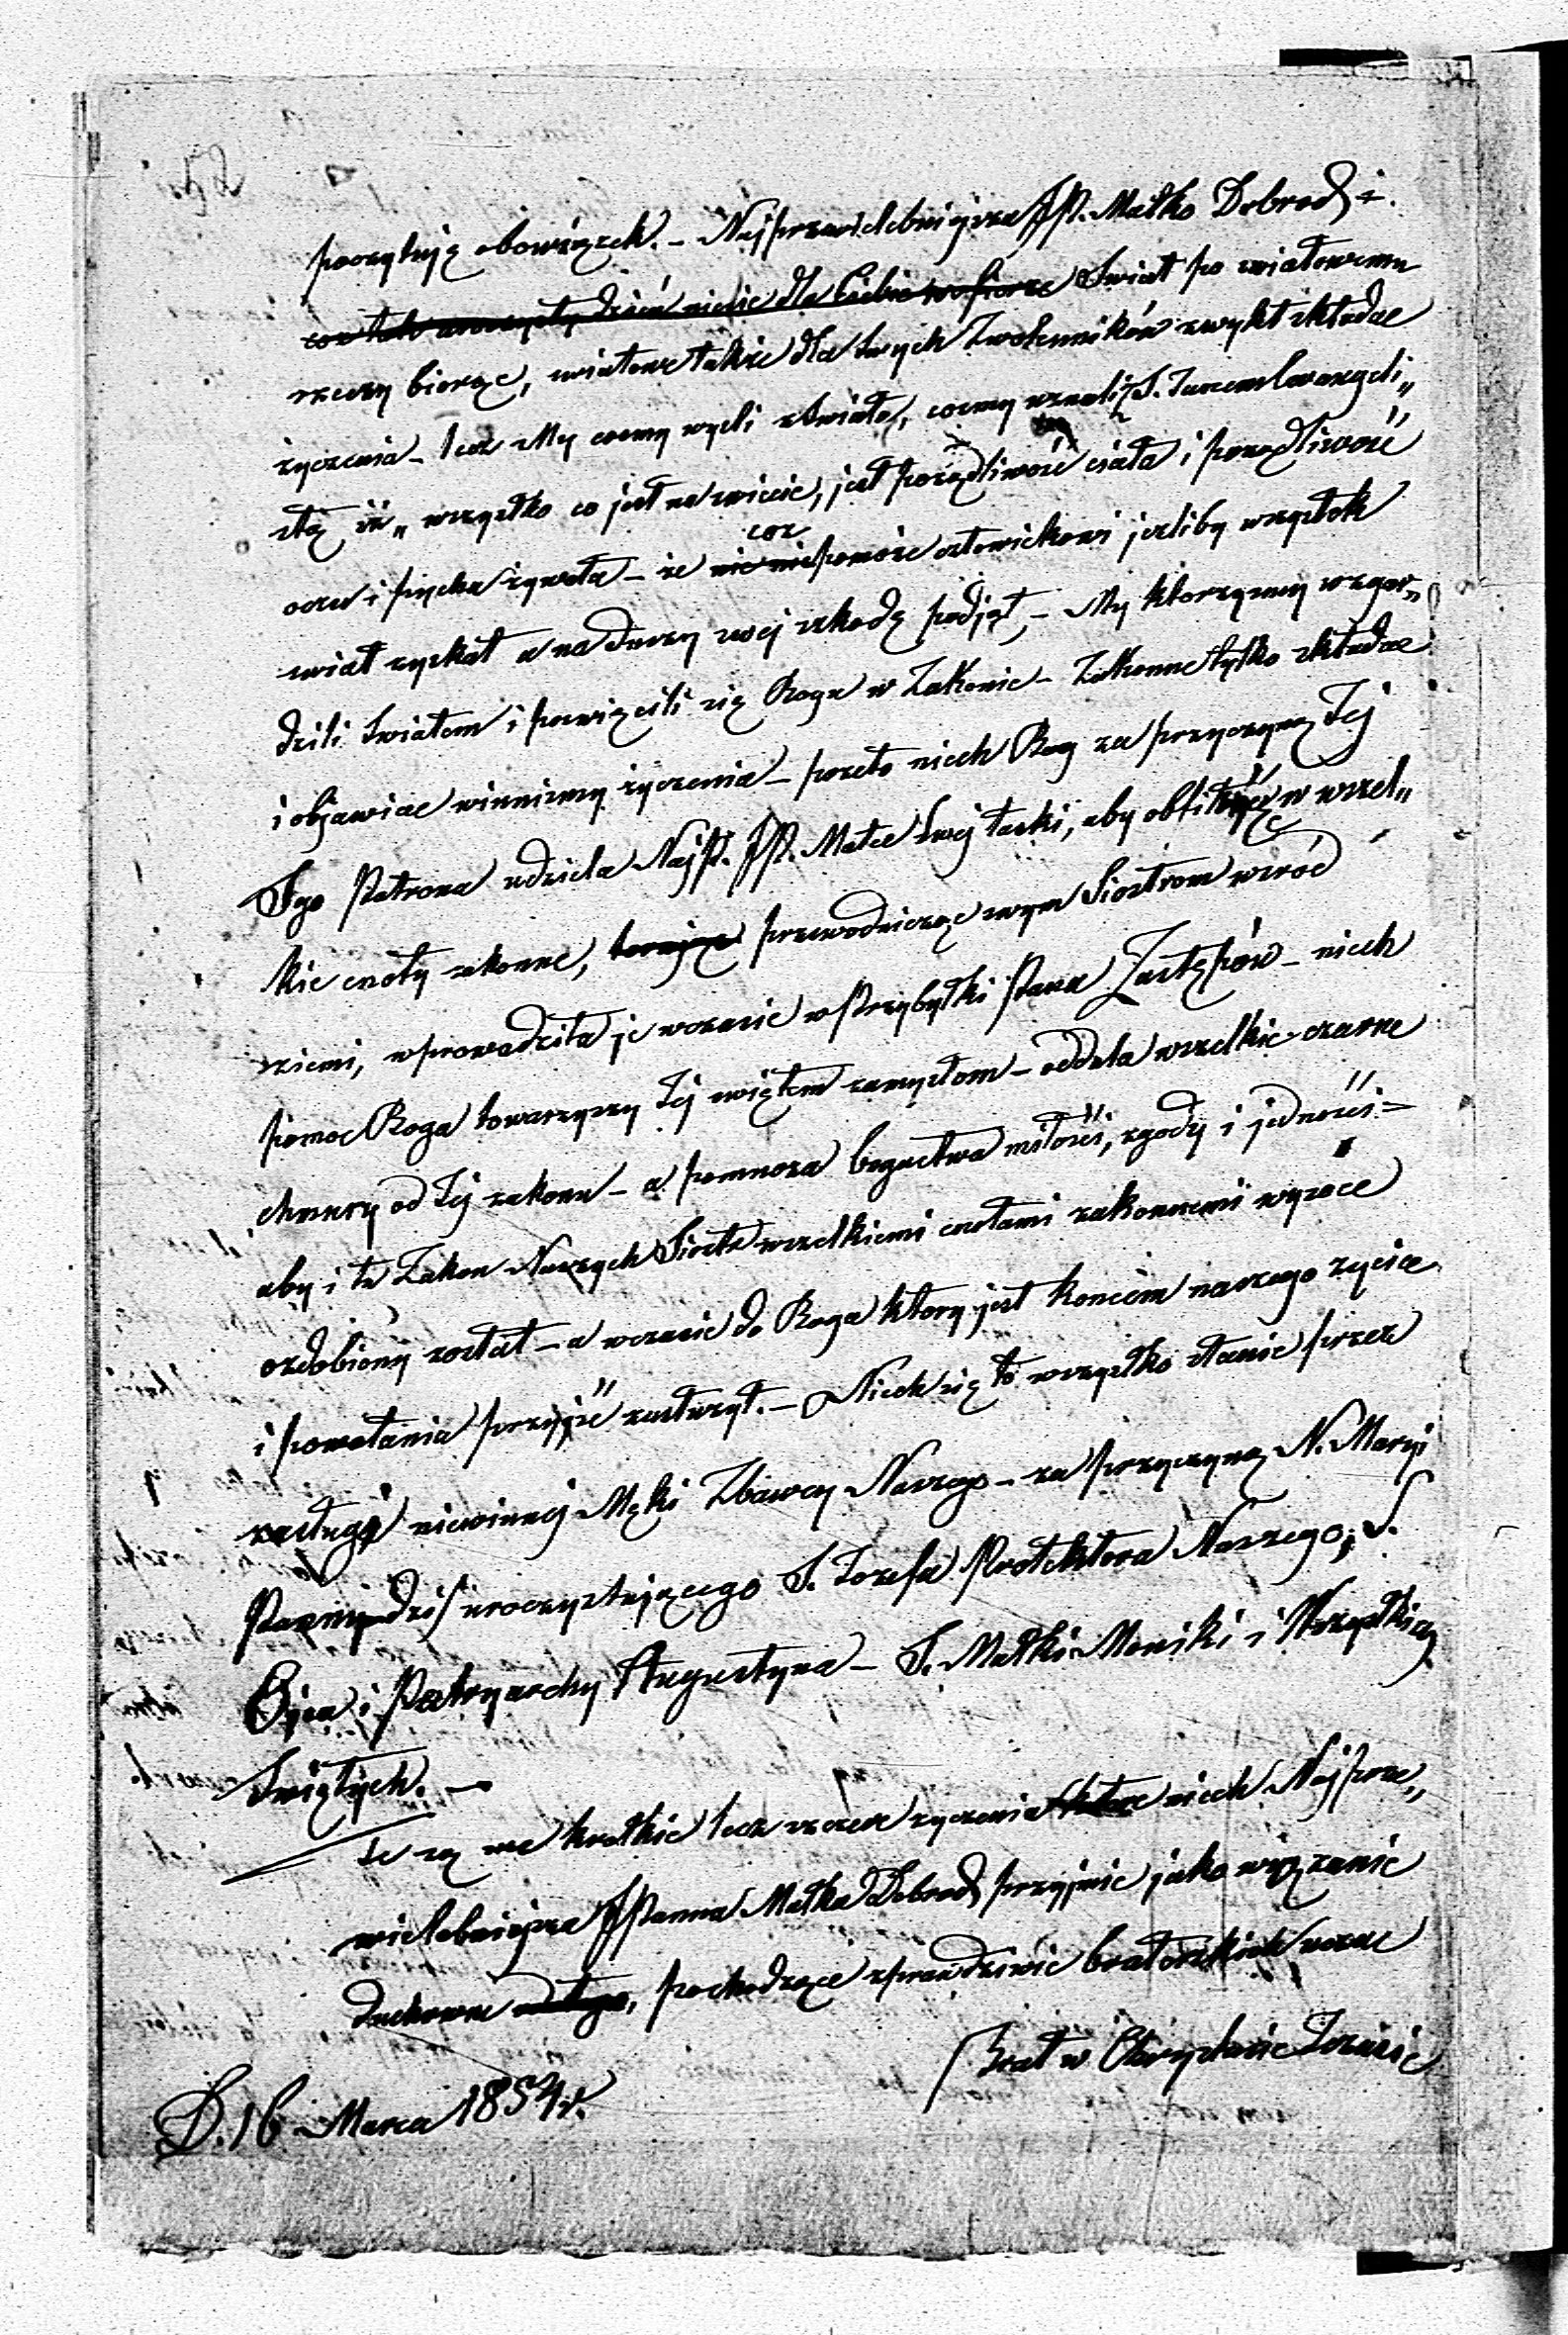 poczytuję obowiązek. – Najprzewielebniejsza JP. Matko Dobrodz:
coz tak uroczysty dzień niesie dla Ciebie w ofierze Świat po swiatowemu
rzeczy biorąc, swiatowe także dla swych Zwolenników zwykł składac
życzenia – lecz My cosmy wyśli z świata, cosmy uznali z S. Janem Ewangeli„
stą iż „wszystko co jest na swiecie, jest porządliwość ciała i porządliwość
oczu i pycha żywota – że nic nie coz pomoże człowiekowi jesliby wszystek
swiat zyskał a na duszy swej szkodę podjął, – My ktorzysmy wzgar„
dzili Swiatem i poswięcili się Bogu w Zakonie – Zakonne tylko składac
i objawiac winnismy życzenia – przeto niech Bog za przyczyną Jej
Sgo Patrona udziela Najp. JP. Matce swej łaski, aby obfitując w wszel„
kie cnoty zakonne, przewodnicząc swym Siostrom wsród
ziemi, wprowadziła je wczasie w Przybytki Pana Zastępów – niech
pomoc Boga towarzyszy Jej swiętem zamysłom – oddala wszelkie czarne
chmury od Jej zakonu – a pomnaża bogactwa miłości, zgody i jedności –
aby i ta Zakon Naszych Siostr wszelkiemi cnotami zakonnemi wyzoce
ozdobiony został – a wczasie do Boga ktory jest koncem naszego zycia
i powołania przyjść zasłużył. – Niech się to wszystko stanie przez
zasługi niewinnej Męki Zbawcy Naszego – za przyczyną N. Maryi
Panny dziś uroczystującego S. Jozefa Protektora Naszego, S.
Ojca i Patryarchy Augustyna – S. Matki Moniki i Wszystkich
Swiętych. –
Te są me krotkie lecz szczere zyczenia ktore niech Najprze„
wielebniejsza JPanna Matka Dobrodz przyjmie jako wiązanie
duchowne, pochodzące z prawdziwie braterskich uczuc
Brat w Chrystusie Jezusie
D. 16 Marca 1854 r.